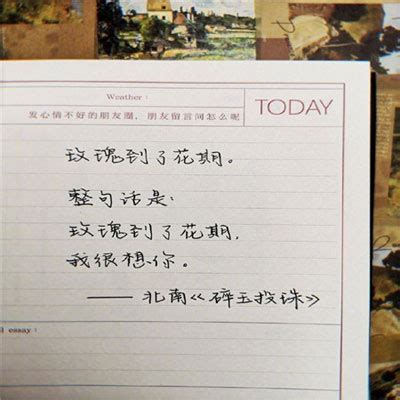 Weather:
TODAY
发心情不好的朋友圈,朋友留言问怎么呢
玫瑰到了花期。
整句话是:
玫瑰到了花期,
我很想你。
——北南《碎玉投珠》
essay: